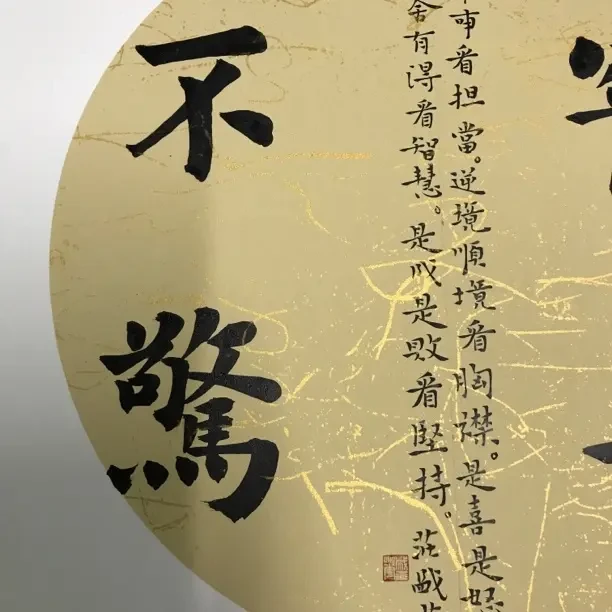 事看担當。逆境順境看胸襟。是喜是
舍有得看智慧。是成是敗看堅持。莊
不驚